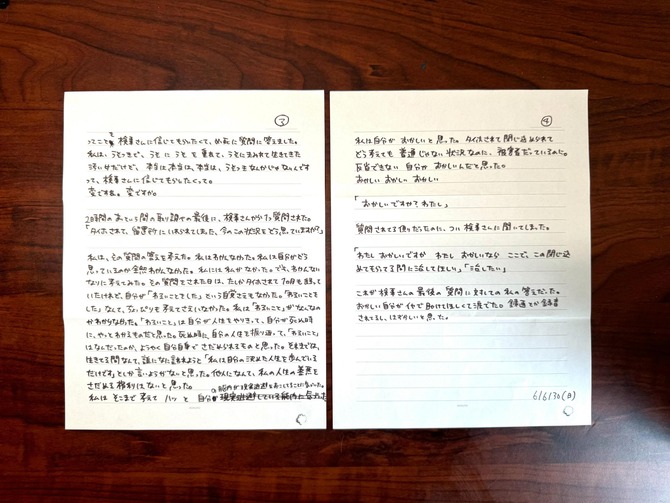 ③
ってことを 検事さんに信じてもらいたくて、必死に質問に答えました。
私は、うそつきで、うそ に うそ を 重ねて、うそにまみれて生きてきた
汚い女だけど、本当は、本当は、本当は、うそつきなんかじゃないんです
って、検事さんに信じてもらいたくって。
変ですね。変ですか。
2時間のあっという間の取り調べの最後に、検事さんから1つ質問された。
「タイホされて、留置所に いれられてました、今のこの状況をどう思っていますか?」
私は、その質問の答えを考えた。私はわかんなかった。私は自分がどう
思っているのか全然わかんなかった。私には私がなかった。でも、わかんない
なりに考えてみた。その質問をされた日は、たしかタイホされて 10日も経って
いたけれど、自分が「わるいことをした」という自覚さえもなかった。「わるいことを
した」なんて、ちょっぴりも考えてさえいなかった。私は「わるいこと」がなんなの
かわからなかった。「わるいこと」は自分が人生をやりきって、自分が死ぬ時
に、やっとわかるものだと思った。死ぬ時に、自分の人生を振り返って、「わるいこと」
はなんだったのか、ようやく自分自身でさだめられるものと思った。それまでは、
生きてる間なんて、誰になに言われようと「私は自分の決めた人生を歩んでいる
だけです」としか言いようがないと思った。他人になんて、私の人生の善悪を
さだめる権利はないと思った。
私は そこまで 考えて ハッ と 自分が現実逃避している
④
私は自分が おかしいと思った。タイホされて閉じ込められて
どう考えても 普通じゃない状況なのに、被害者だっているのに。
反省できない 自分が おかしいんだと思った。
おかしい おかしい おかしい
「おかしいですか? わたし」
質問されてる側だったのに、つい 検事さんに聞いてしまった。
「わたし おかしいですか わたし おかしいなら ここで、この閉じ込
めてもらってる間に治してほしい」「治したい」
これが 検事さんの 最後の 質問 に対しての 私の 答えだった。
おかしい自分がイヤで助けてほしくて涙でた。録画とか録音
されてるし、はずかしいと思った。
6/6/30(日)